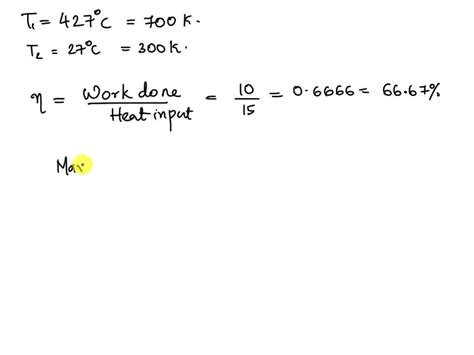 T₁ = 427°C = 700 K.
T₂ = 27°C = 300 K.
η = Work done / Heat input = 10 / 15 = 0.6666 = 66.67%
Max